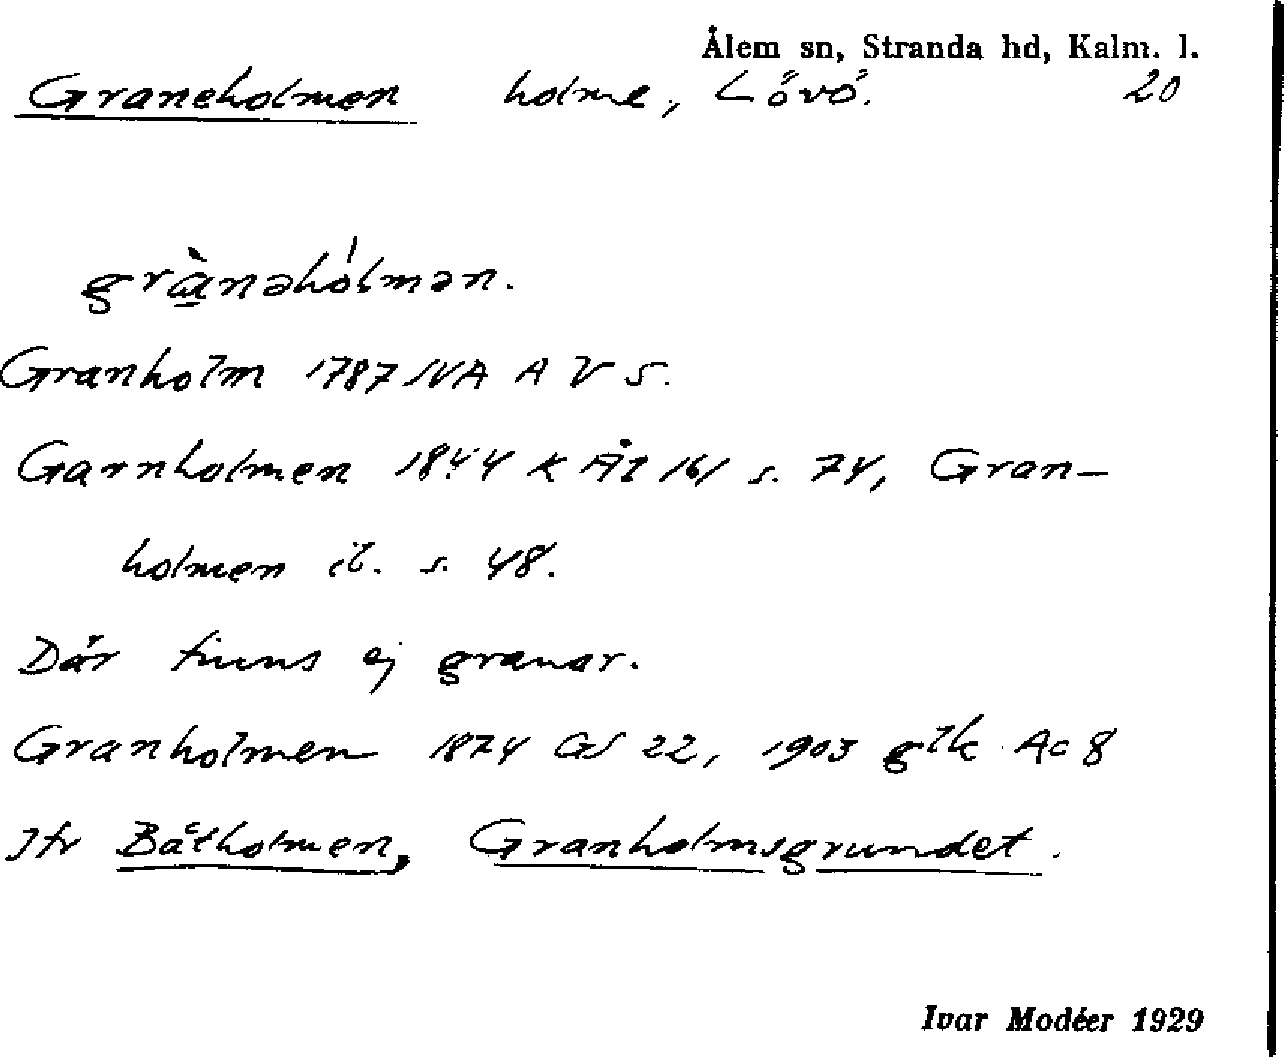 Ålem sn, Stranda hd, Kalm. l.
Graneholmen holme, Lövö. 20
grànəhólmən.
Granholm 1787 IVA A V 5.
Garnholmen 1844 K ÅI 161 s. 74, Gran-
holmen ib. s. 48.
Där finns ej granar.
Granholmen 1874 GS 22, 1903 glk Ac 8
Jfr Båtholmen, Granholmsgrundet.
Ivar Modéer 1929